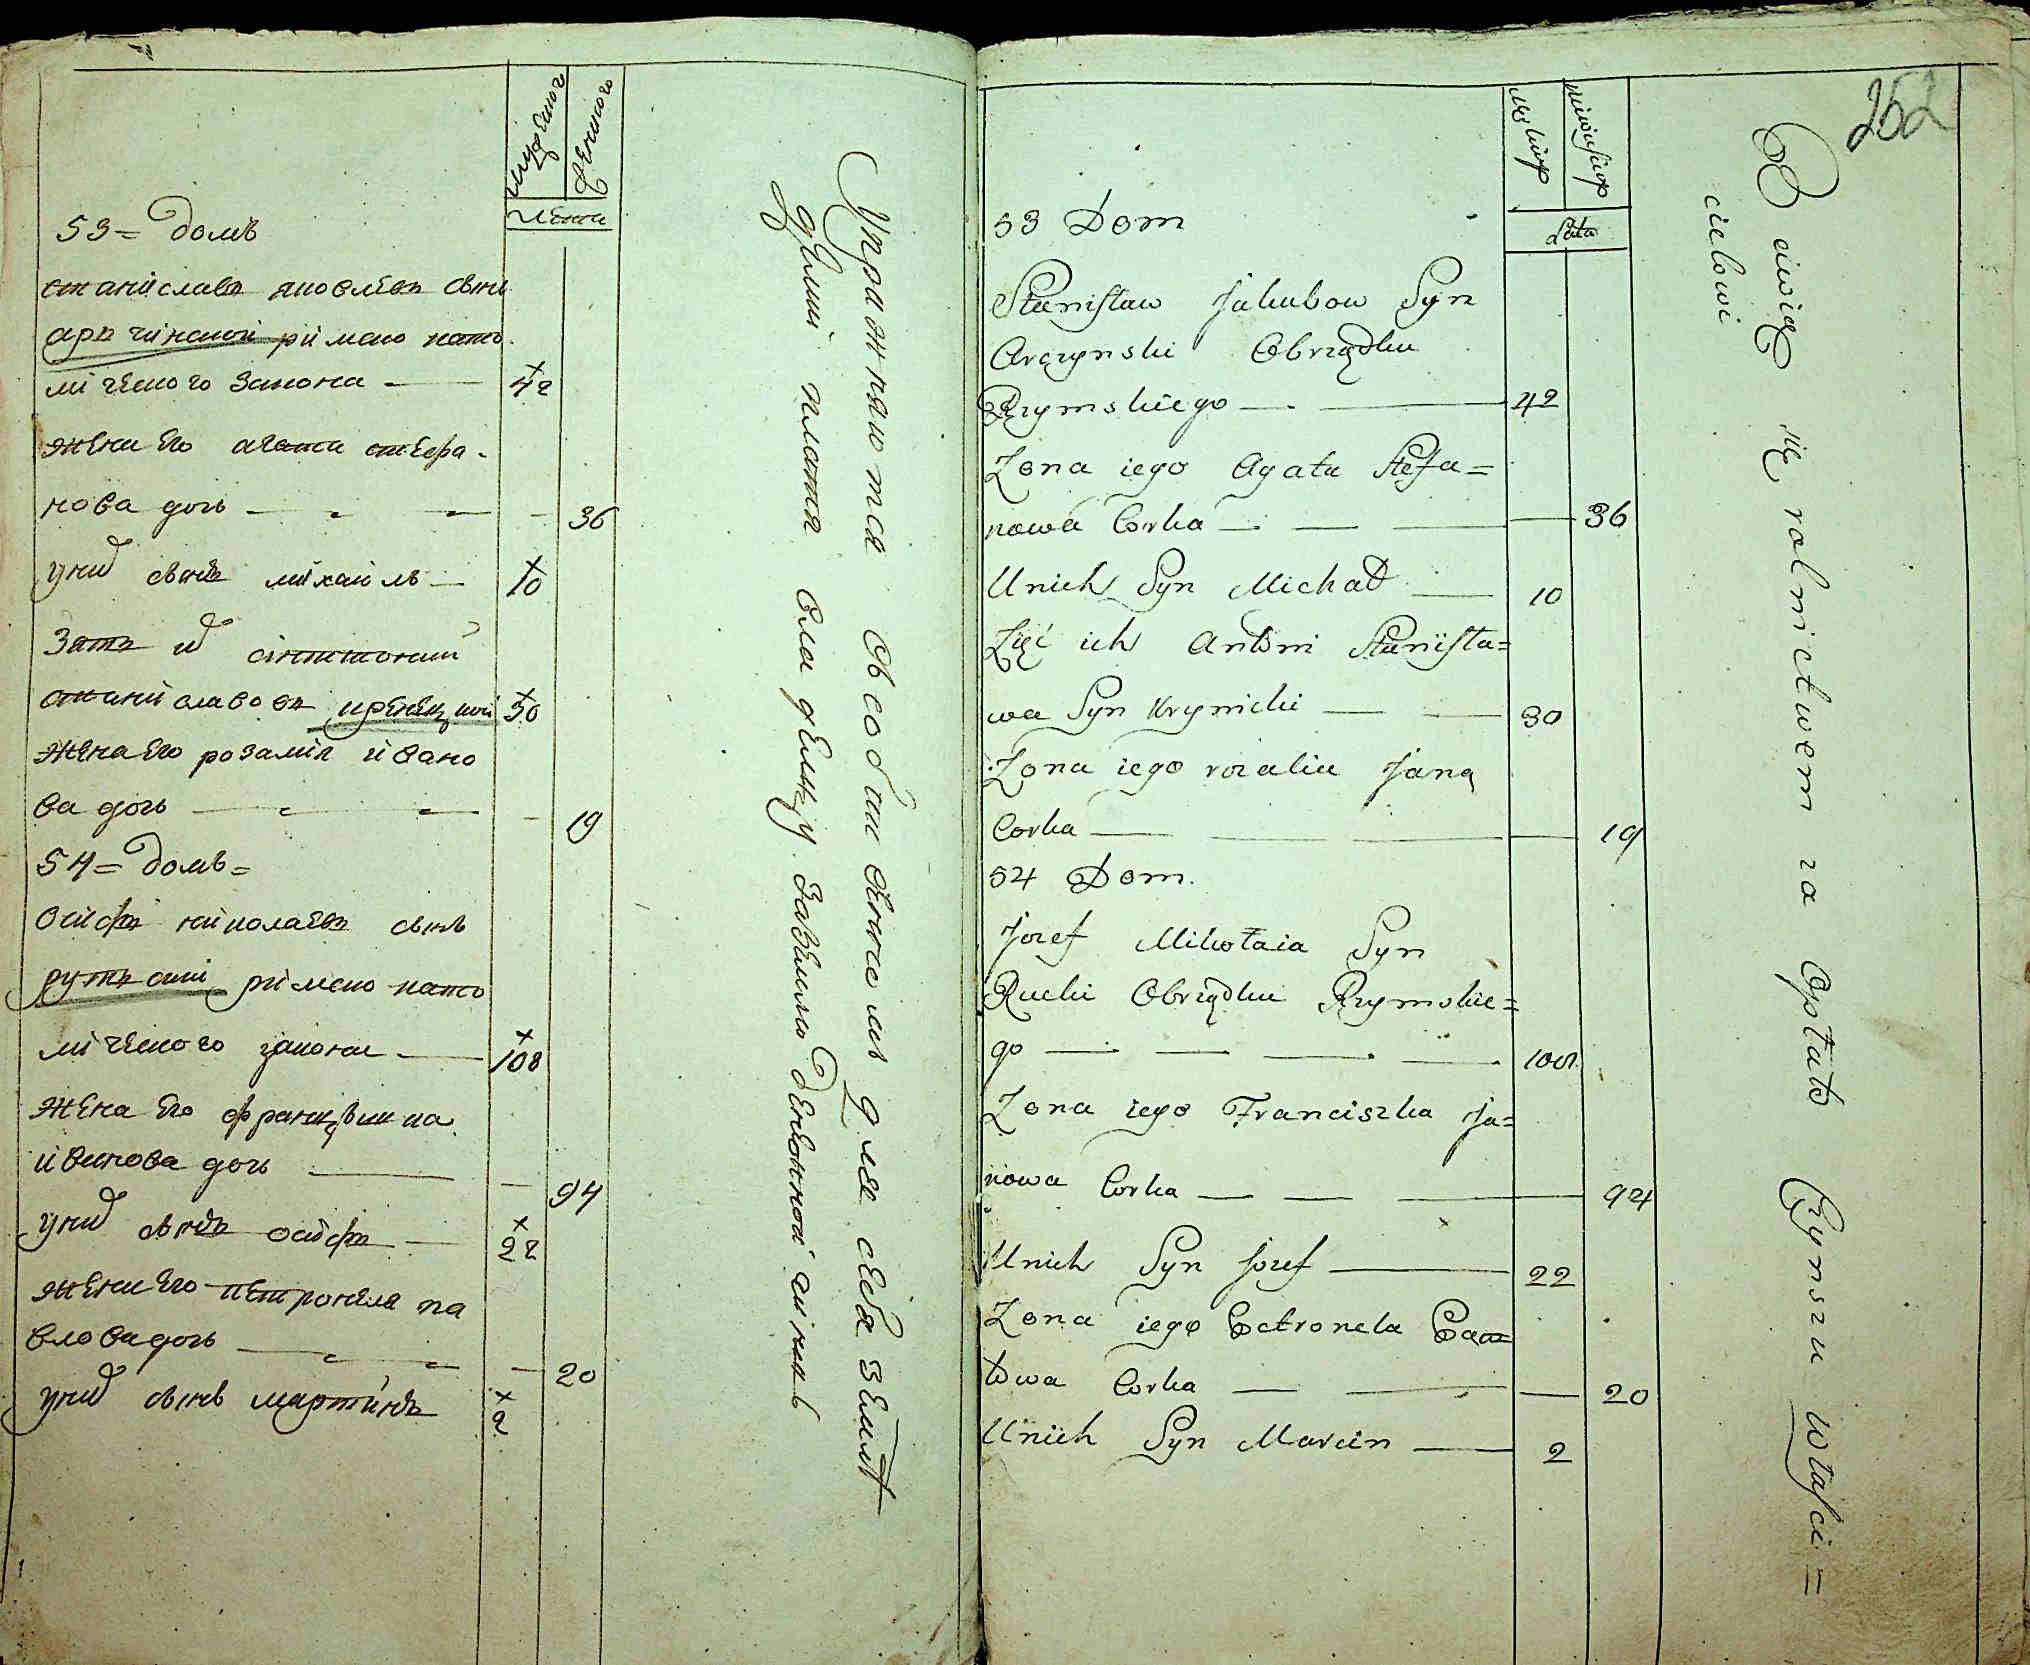 мужеска
женскаго
лета
53 = домъ
станиславъ яковлевъ сынъ
арчинской римско като
лическаго закона — 42
жена его агата стефа-
нова дочь — — 36
у них сынъ михаилъ — 10
зять их антоний
станиславовъ креницкий 30
жена его розалия ивано
ва дочь — — 19
54 = домъ =
осифъ николаевъ сынъ
рутский римско като
лическаго закона — 108
жена его францишка
иванова дочь — — 94
у них сынъ осифъ — 22
жена его петронеля па
влова дочь — — 20
у них сынъ мартинъ 2
Упражняются въ собственномъ для себя земле
делии платя владельцу за землю денежной чиншъ
252
męskiey
niewieściey
Lata
53 Dom
Stanisław Jakubow Syn
Arczynski Obrządku
Rzymskiego — — 42
Zona iego Agata Stefa=
nowa Corka — — — 36
U nich Syn Michał — 10
Zięć ich Antoni Stanisła=
wa Syn Krynicki — — 30
Zona iego rozalia Jana
Corka — — — 19
54 Dom.
Jozef Mikołaia Syn
Rucki Obrządku Rzymskie=
go — — — — 108
Zona iego Franciszka Ja=
nowa Corka — — — 94
U nich Syn Jozef — 22
Zona iego Petronela Paw
łowa Corka — — — 20
U nich Syn Marcin — 2
Cwiczą się rolnictwem za Opłato Czynszu właści=
cielowi